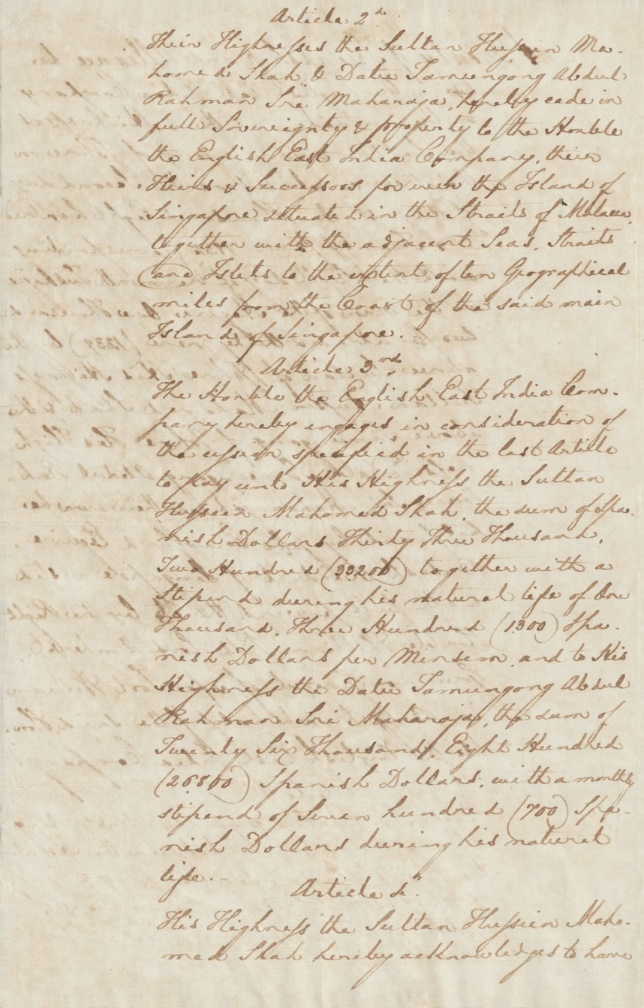 Article 2d.
Their Highnesses the Sultan Hussein Ma-
homed Shah & Datu Tumungong Abdul
Rahman Sri Maharaja, hereby cede in
full Sovereignty & property to the Honble
the English East India Company, their
Heirs & Successors for ever the Island of
Singapore situated in the Straits of Malacca,
together with the adjacent Seas, Straits
and Islets to the extent of ten Geographical
miles from the Coast of the said main
Island of Singapore.
Article 3rd.
The Honble the English East India Com-
pany hereby engages in consideration of
the cession specified in the last Article
to pay unto His Highness the Sultan
Hussein Mahomed Shah, the sum of Spa-
nish Dollars Thirty Three Thousand,
Two Hundred (33200) together with a
Stipend during his natural life of One
Thousand, Three Hundred (1300) Spa-
nish Dollars per Mensem, and to His
Highness the Datu Tumungong Abdul
Rahman Sri Maharaja, the sum of
Twenty Six Thousand, Eight Hundred
(26800) Spanish Dollars, with a monthly
stipend of Seven hundred (700) Spa-
nish Dollars during his natural
life.-
Article 4.
His Highness the Sultan Hussein Maho-
med Shah hereby acknowledges to have